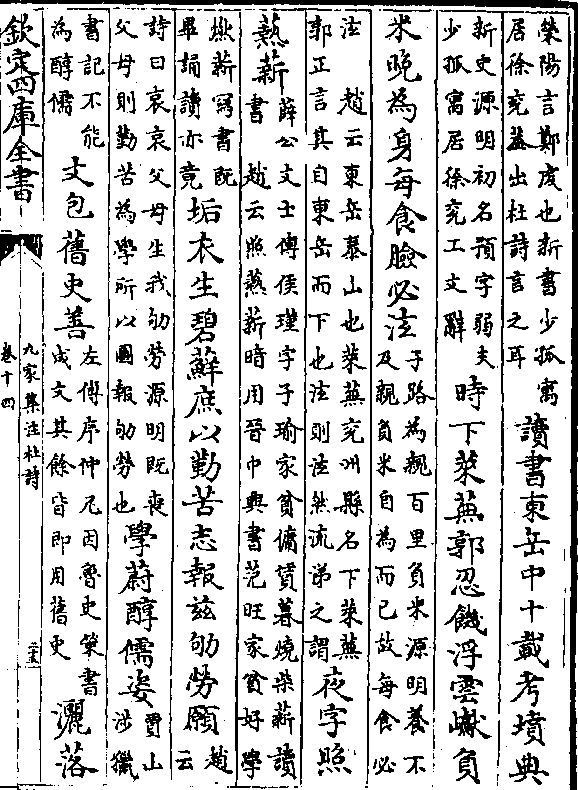 榮陽言鄭虔也新書少孤寓
居徐兖蓋出杜詩言之耳
讀書東岳中十載考墳典
新史源明初名預字弱夫
少孤寓居徐兖工文辭
時下萊蕪郭忍饑浮雲巘負
米晚為身每食臉必泫
子路為親百里負米源明養不
及親負米自為而已故每食必
泫 趙云東岳泰山也萊蕪兖州縣名下萊蕪
郭正言其自東岳而下也泫則泫然流涕之謂
夜字照
爇薪
薛公文士傳侯瑾字子瑜家貧傭賃暮燒柴薪讀
書 趙云照爇薪暗用晉中興書范旺家貧好學
燃薪寫書既
畢誦讀亦竟
垢衣生碧蘚庶以勤苦志報茲劬勞願
趙
云
詩曰哀哀父母生我劬勞源明既喪
父母則勤苦為學所以圖報劬勞也
學蔚醇儒姿
賈山
涉獵
書記不能
為醇儒
文包舊史善
左傳序仲尼因魯史策書
成文其餘皆即用舊史
灑落
欽定四庫全書
九家集注杜詩
卷十四
二十五